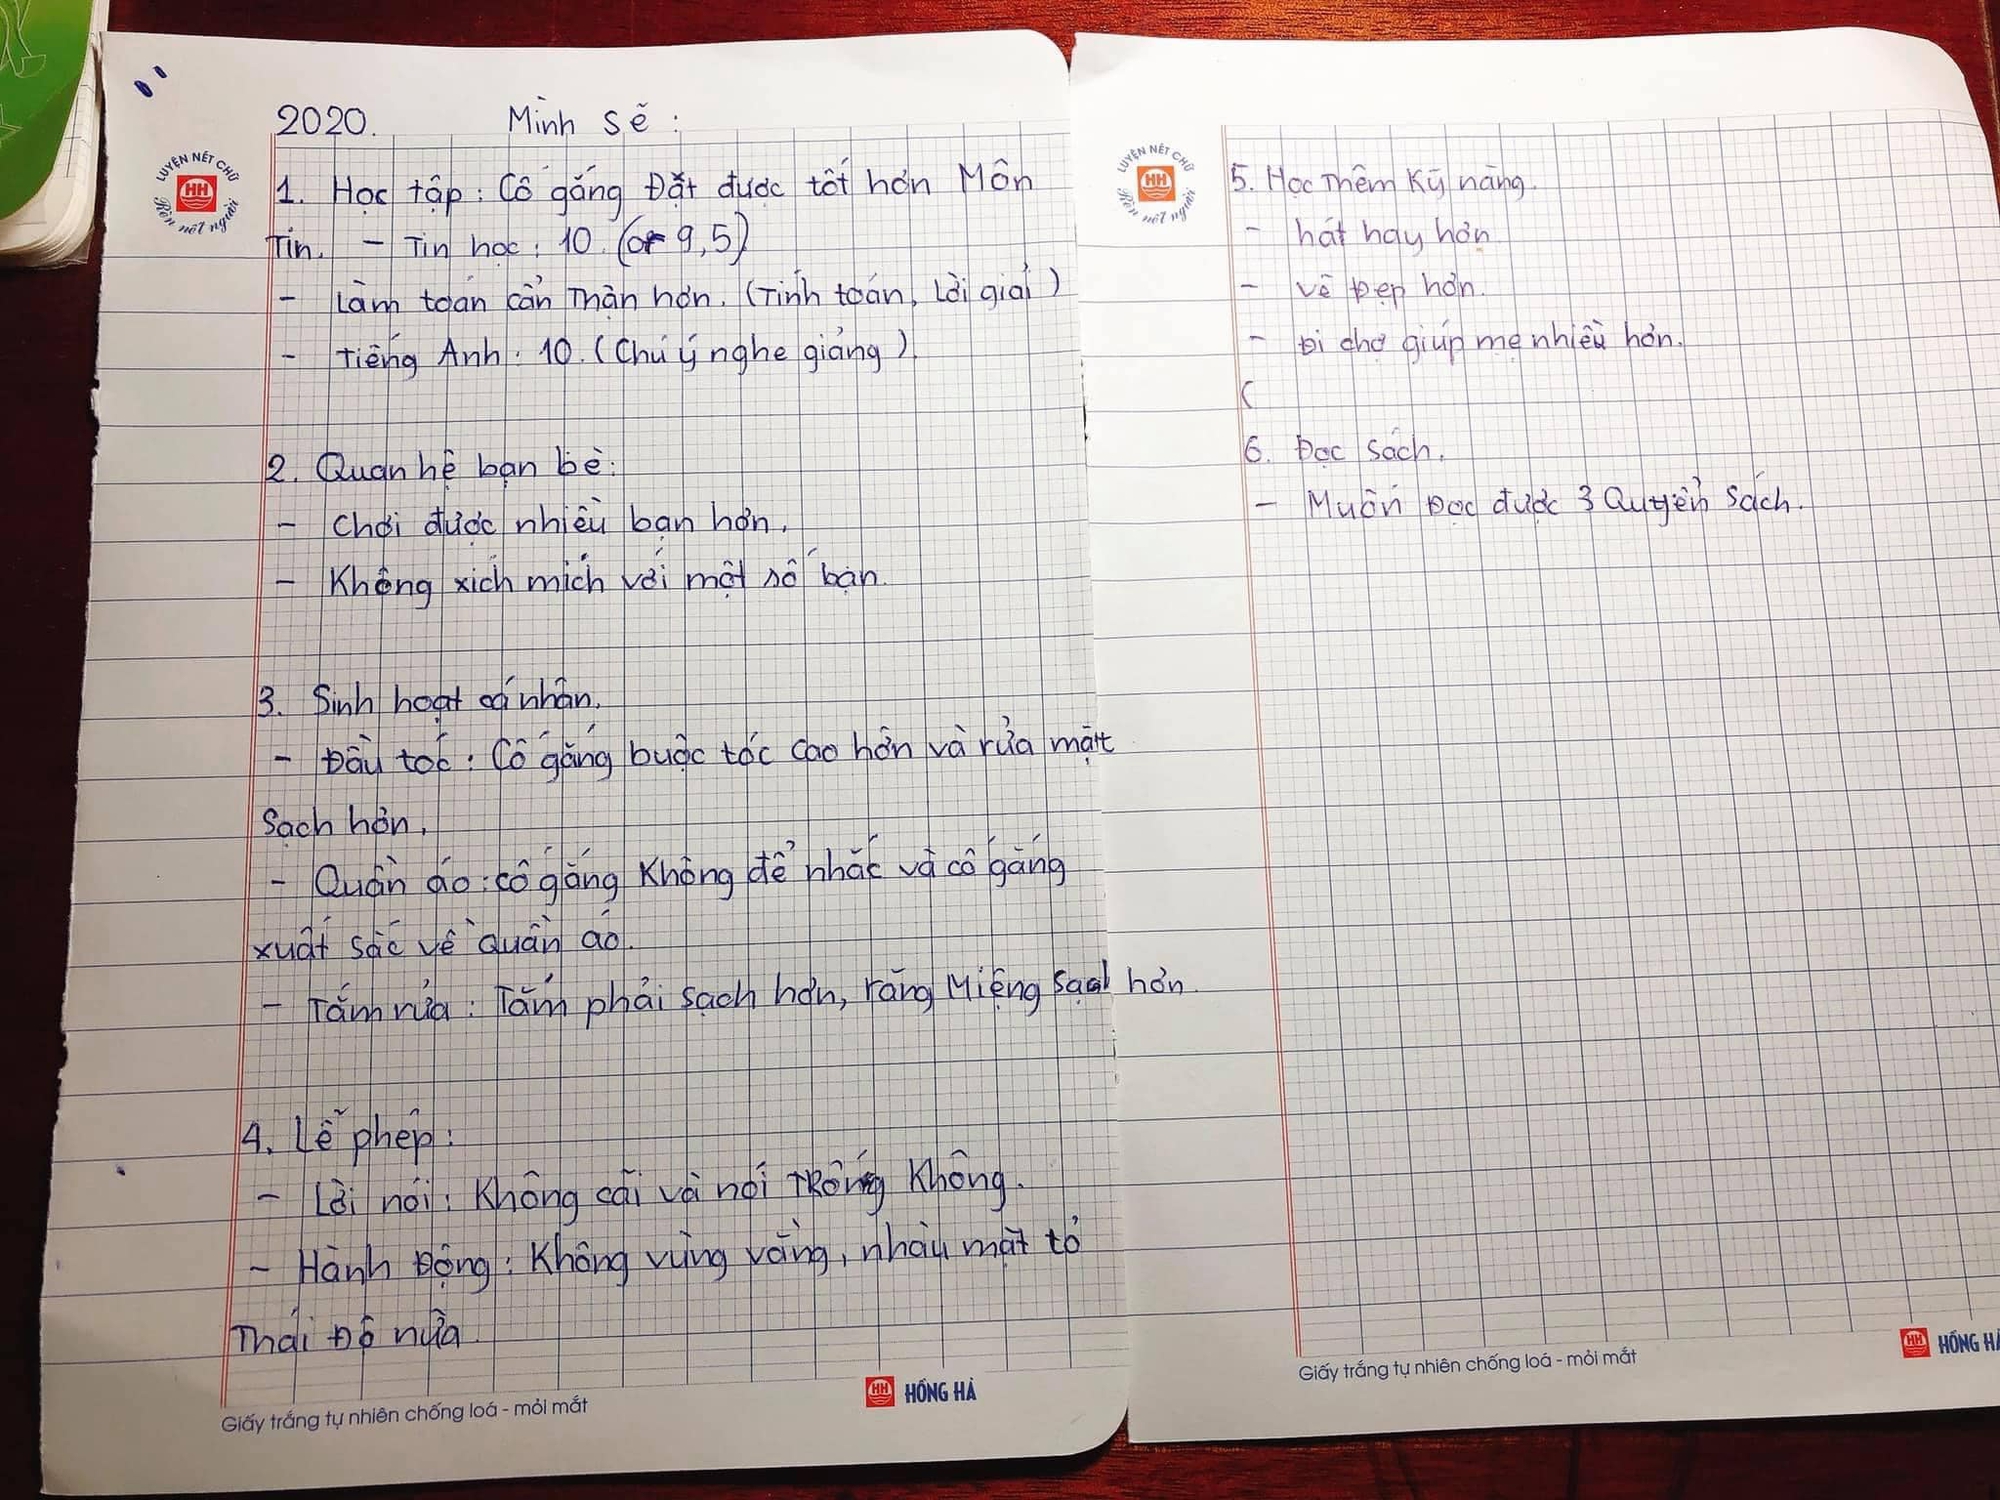 LUYỆN NÉT CHỮ
HH
Rèn nết người
2020. Mình sẽ:
1. Học tập: Cố gắng Đặt được tốt hơn Môn
Tin. - Tin học: 10. (or 9,5)
- Làm toán cẩn thận hơn. (Tính toán, Lời giải)
- Tiếng Anh: 10. (Chú ý nghe giảng).
2. Quan hệ bạn bè:
- Chơi được nhiều bạn hơn.
- Không xích mích với một số bạn.
3. Sinh hoạt cá nhân.
- Đầu tóc: Cố gắng buộc tóc cao hơn và rửa mặt
Sạch hơn.
- Quần áo: cố gắng Không để nhắc và cố gắng
xuất sắc về quần áo.
- Tắm rửa: Tắm phải sạch hơn, răng Miệng sạch hơn.
4. Lễ phép:
- Lời nói: Không cãi và nói TRống Không.
- Hành Động: Không vùng vằng, nhàu mặt tỏ
Thái Độ nữa.
Giấy trắng tự nhiên chống loá - mỏi mắt
HH HỒNG HÀ
LUYỆN NÉT CHỮ
HH
Rèn nết người
5. Học Thêm Kỹ năng.
- hát hay hơn.
- vẽ Đẹp hơn.
- Đi chợ giúp mẹ nhiều hơn.
(
6. Đọc Sách.
- Muốn Đọc được 3 Quyển Sách.
Giấy trắng tự nhiên chống loá - mỏi mắt
HH HỒNG HÀ